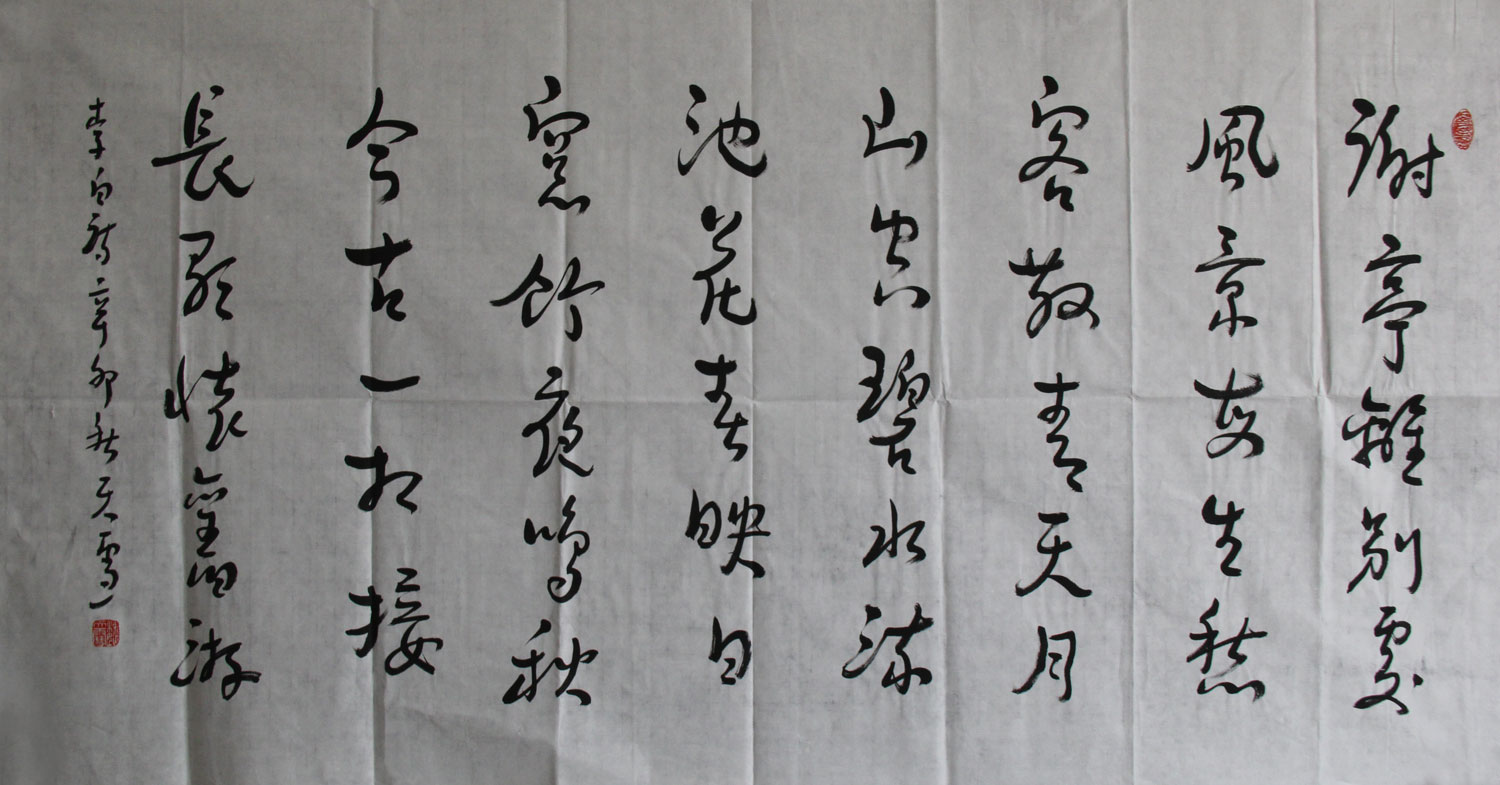 謝亭離別處
風景每生愁
客散青天月
山空碧水流
池花春映日
窓竹夜鳴秋
今古一相接
長歌懷舊游
李白詩辛卯秋天